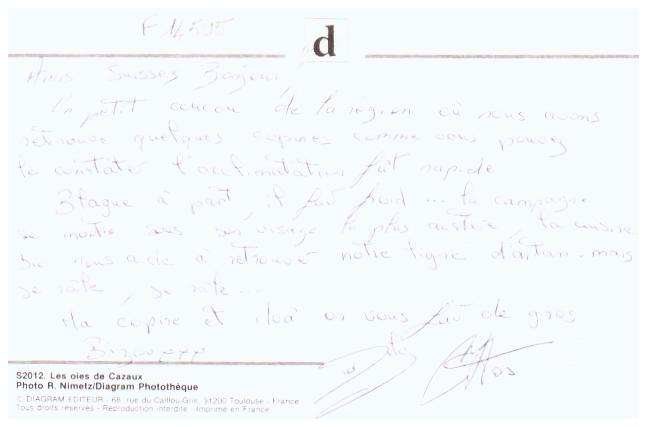 F 14595
d
Amis Suisses Bonjour
Un petit coucou de la region où nous avons
retrouvé quelques copines comme vous pouvez
le constaté l'acclimatation fût rapide
Blague à part, il fait froid... la campagne
se montre sous son visage le plus austère, la cuisine
nous aide à retrouvé notre ligne d'antan. mais
je rate, je rate...
Ma copine et moà on vous fait de gros
Bizouxxx
S2012. Les oies de Cazaux
Photo R. Nimetz/Diagram Photothèque
© DIAGRAM EDITEUR - 68, rue du Caillou-Gris, 31200 Toulouse - France
Tous droits réservés - Reproduction interdite - Imprimé en France